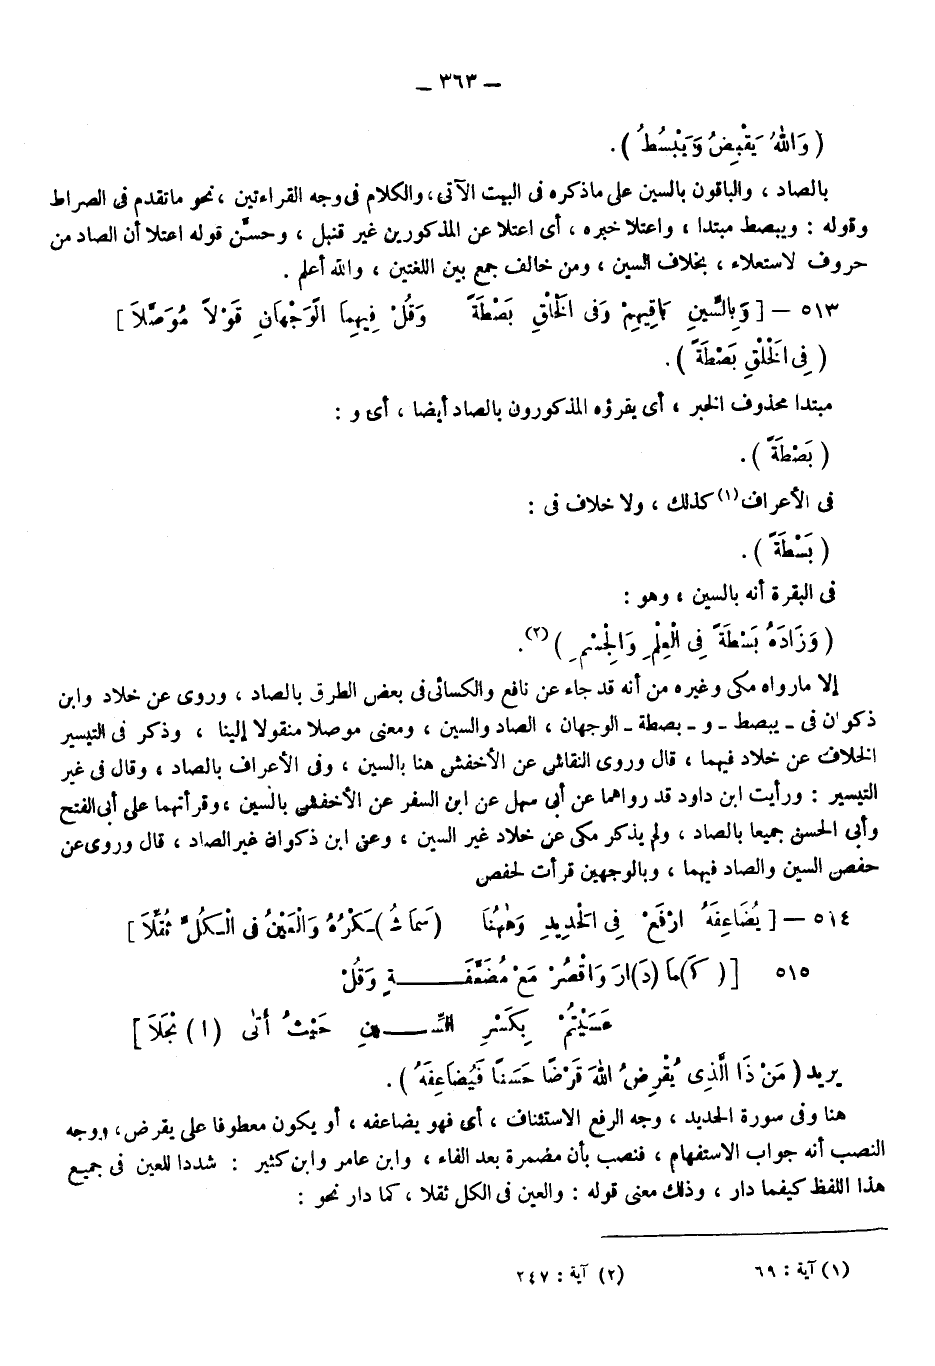 — ٣٦٣ —
( وَاللهُ يَقْبِضُ وَيَبْسُطُ ) .
بالصاد ، والباقون بالسين على ماذكره فى البيت الآتى، والكلام فى وجه القراءتين ، نحو ماتقدم فى الصراط
وقوله : ويبصط مبتدا ، واعتلا خبره ، أى اعتلا عن المذكورين غير قنبل ، وحسَّن قوله اعتلا أن الصاد من
حروف لاستعلاء ، بخلاف السين ، ومن خالف جمع بين اللغتين ، والله أعلم .
٥١٣ — [ وَبِالسِّينِ بَاقِيهِمْ وَفى الْخَلْقِ بَصْطَةً وَقُلْ فِيهِمَا الْوَجْهَانِ قَوْلاً مُوَصَّلاَ ]
( فِى الْخَلْقِ بَصْطَةً ) .
مبتدا محذوف الخبر ، أى يقرؤه المذكورون بالصاد أيضا ، أى و :
( بَصْطَةً ) .
فى الأعراف (١) كذلك ، ولا خلاف فى :
( بَسْطَةً ) .
فى البقرة أنه بالسين ، وهو :
( وَزَادَهُ بَسْطَةً فِى الْعِلْمِ وَالْجِسْمِ ) (٢).
إلا مارواه مكى وغيره من أنه قد جاء عن نافع والكسائى فى بعض الطرق بالصاد ، وروى عن خلاد وابن
ذكوان فى ـ يبصط ـ و ـ بصطة ـ الوجهان ، الصاد والسين ، ومعنى موصلا منقولا إلينا ، وذكر فى التيسير
الخلاف عن خلاد فيهما ، قال وروى النقاش عن الأخفش هنا بالسين ، وفى الأعراف بالصاد ، وقال فى غير
التيسير : ورأيت ابن داود قد رواهما عن أبى سهل عن ابن السفر عن الأخفش بالسين ، وقرأتهما على أبى الفتح
وأبى الحسن جميعا بالصاد ، ولم يذكر مكى عن خلاد غير السين ، وعن ابن ذكوان غير الصاد ، قال وروى عن
حفص السين والصاد فيهما ، وبالوجهين قرأت لحفص
٥١٤ — [ يُضَاعِفَهُ ارْفَعْ فِى الْحَدِيدِ وَهٰهُنَا (سَمَا شُ)ـكْرُهُ وَالْعَيْنُ فى الْكُلِّ ثُقِّلاَ ]
٥١٥ [ (كَ)مَا (دَ)ارَ وَاقْصُرْ مَعْ مُضَعَّفَـــةٍ وَقُلْ
عَسَيْتُمْ بِكَسْرِ السِّـــينِ حَيْثُ أَتَى (ا) نْجَلاَ ]
يريد ( مَنْ ذَا الَّذِى يُقْرِضُ اللهَ قَرْضًا حَسَنًا فَيُضَاعِفَهُ ) .
هنا وفى سورة الحديد ، وجه الرفع الاستئناف ، أى فهو يضاعفه ، أو يكون معطوفا على يقرض ، ووجه
النصب أنه جواب الاستفهام ، فنصب بأن مضمرة بعد الفاء ، وابن عامر وابن كثير : شددا للعين فى جميع
هذا اللفظ كيفما دار ، وذلك معنى قوله : والعين فى الكل ثقلا ، كما دار نحو :
(١) آية : ٦٩ (٢) آية : ٢٤٧